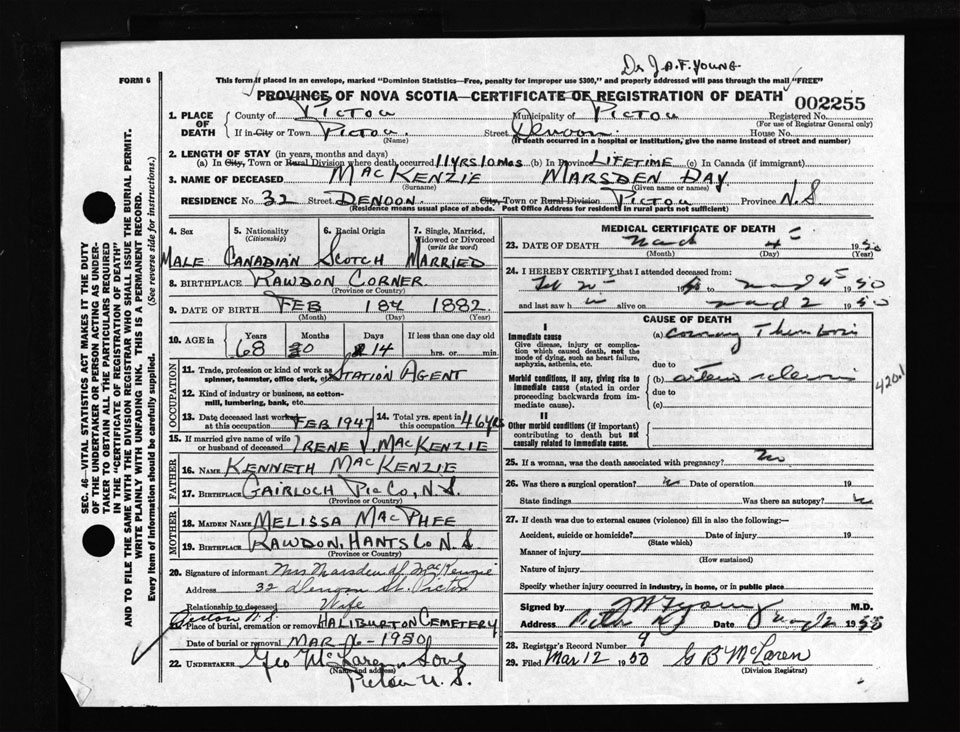 Dr J.A.F. YOUNG
FORM 6
This form if placed in an envelope, marked "Dominion Statistics—Free, penalty for improper use $300," and properly addressed will pass through the mail "FREE"
PROVINCE OF NOVA SCOTIA—CERTIFICATE OF REGISTRATION OF DEATH
002255
1. PLACE OF DEATH
County of PICTOU Municipality of PICTOU Registered No.
(For use of Registrar General only)
If in City or Town PICTOU. Street DENOON. House No.
(Name) (If death occurred in a hospital or institution, give name instead of street and number)
2. LENGTH OF STAY (in years, months and days)
(a) In City, Town or Rural Division where death occurred 11YRS10Mos (b) In Province LIFETIME (c) In Canada (if immigrant)
3. NAME OF DECEASED MACKENZIE MARSDEN DAY
(Surname) (Given name or names)
RESIDENCE No. 32 Street DENOON. City, Town or Rural Division PICTOU Province N.S
(Residence means usual place of abode. Post Office Address for residents in rural parts not sufficient)
4. Sex 5. Nationality (Citizenship) 6. Racial Origin 7. Single, Married, Widowed or Divorced (write the word)
MALE CANADIAN SCOTCH MARRIED
8. BIRTHPLACE RAWDON CORNER.
(Province or Country)
9. DATE OF BIRTH FEB 18th 1882
(Month) (Day) (Year)
10. AGE in Years Months Days If less than one day old
68 0 14 hrs. or min.
OCCUPATION
11. Trade, profession or kind of work as spinner, teamster, office clerk, etc. STATION AGENT
12. Kind of industry or business, as cotton-mill, lumbering, bank, etc.
13. Date deceased last worked at this occupation FEB 1947 14. Total yrs. spent in this occupation 46YRS
15. If married give name of wife or husband of deceased IRENE V. MACKENZIE
FATHER
16. NAME KENNETH MACKENZIE
17. BIRTHPLACE GAIRLOCH PIC CO, N.S.
(Province or Country)
MOTHER
18. MAIDEN NAME MELISSA MACPHEE
19. BIRTHPLACE RAWDON, HANTS CO N.S
(Province or Country)
20. Signature of informant Mrs Marsden d. MacKenzie
Address 32 Denoon St. Pictou
Relationship to deceased Wife
Pictou N.S.
21. Place of burial, cremation or removal HALIBURTON CEMETERY
Date of burial or removal MAR 6-1950
22. UNDERTAKER Geo McLaren Sons
(Name and address)
Pictou N.S.
MEDICAL CERTIFICATE OF DEATH
23. DATE OF DEATH March 4 1950
(Month) (Day)
24. I HEREBY CERTIFY that I attended deceased from:
to 1950
and last saw h alive on 1950
CAUSE OF DEATH
I
Immediate cause
Give disease, injury or complication which caused death, not the mode of dying, such as heart failure, asphyxia, asthenia, etc.
(a) coronary Thrombosis
due to
Morbid conditions, if any, giving rise to immediate cause (stated in order proceeding backwards from immediate cause).
(b) arterio sclerosis
due to
(c)
420.1
II
Other morbid conditions (if important) contributing to death but not causally related to immediate cause.
25. If a woman, was the death associated with pregnancy? no
26. Was there a surgical operation? Date of operation 19
State findings Was there an autopsy?
27. If death was due to external causes (violence) fill in also the following:—
Accident, suicide or homicide? Date of injury 19
(State which)
Manner of injury
(How sustained)
Nature of injury
Specify whether injury occurred in industry, in home, or in public place
Signed by Young M.D.
Address Date 1950
28. Registrar's Record Number 9
29. Filed Mar 12 1950 G B McLaren
(Division Registrar)
SEC. 46—VITAL STATISTICS ACT MAKES IT THE DUTY
OF THE UNDERTAKER OR PERSON ACTING AS UNDER-
TAKER TO OBTAIN ALL THE PARTICULARS REQUIRED
IN THE "CERTIFICATE OF REGISTRATION OF DEATH"
AND TO FILE THE SAME WITH THE DIVISION REGISTRAR WHO SHALL ISSUE THE BURIAL PERMIT.
WRITE PLAINLY WITH UNFADING INK. THIS IS A PERMANENT RECORD.
Every item of information should be carefully supplied. (See reverse side for instructions.)